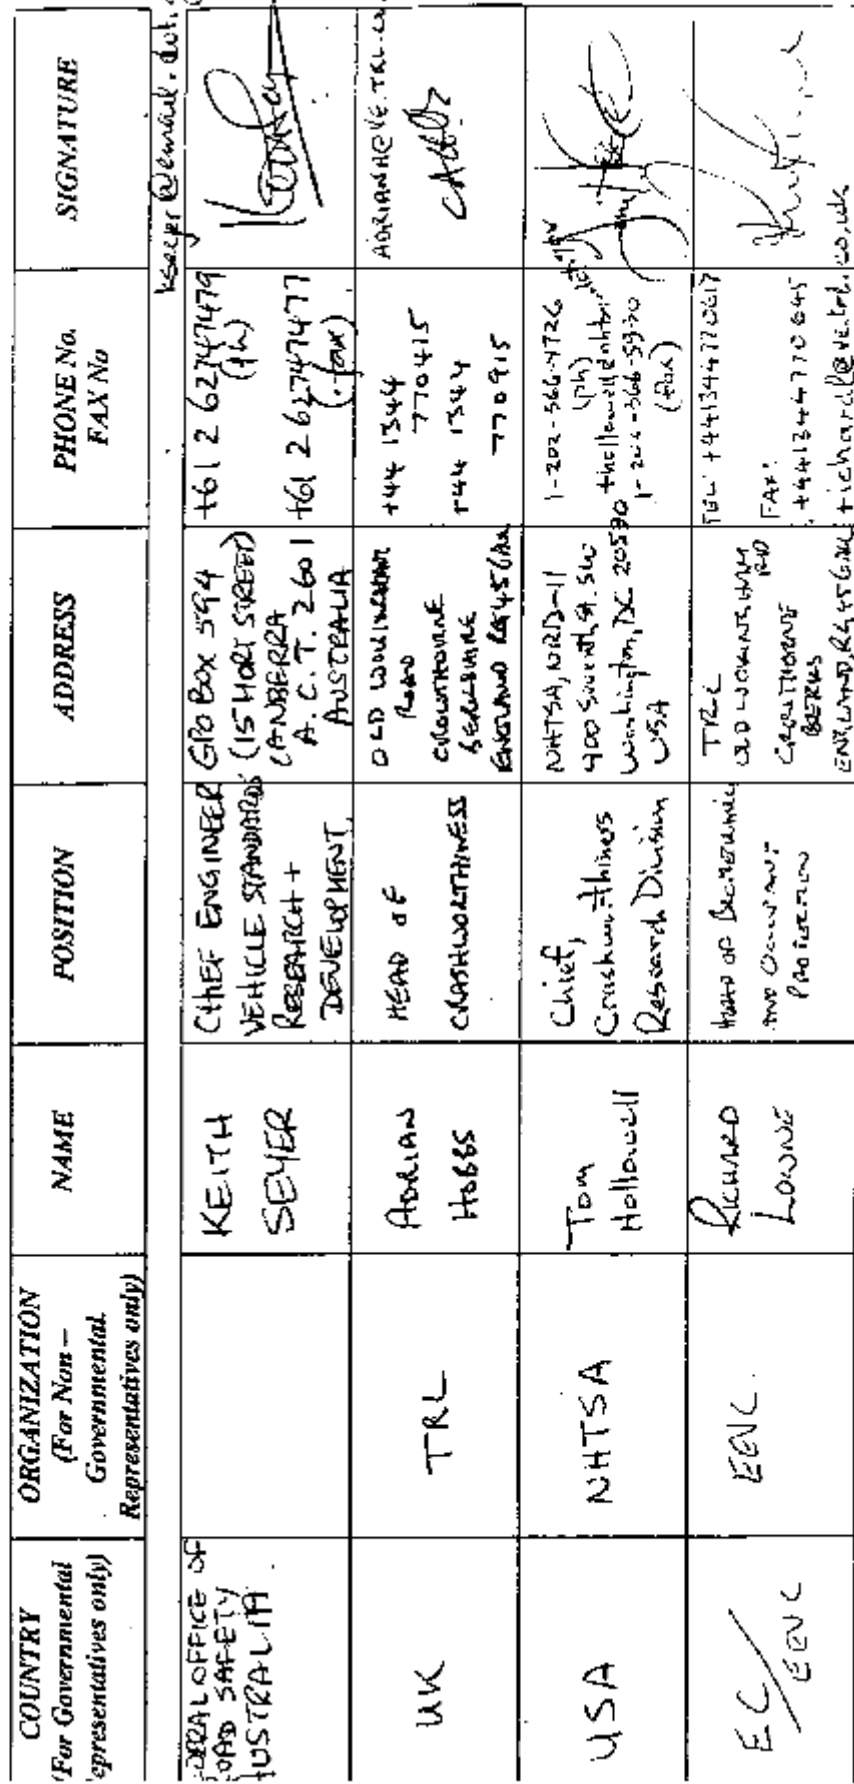 COUNTRY
(For Governmental
epresentatives only)
ORGANIZATION
(For Non –
Governmental
Representatives only)
NAME
POSITION
ADDRESS
PHONE No.
FAX No
SIGNATURE
DERAL OFFICE OF
OAD SAFETY
AUSTRALIA.
KEITH
SEYER
CHIEF ENGINEER
VEHICLE STANDARDS
RESEARCH +
DEVELOPMENT
GPO BOX 594
(15 MORT STREET)
CANBERRA
A.C.T. 2601
AUSTRALIA
+61 2 62747479
(ph)
+61 2 62747477
(fax)
UK
TRL
ADRIAN
HOBBS
HEAD OF
CRASHWORTHINESS
OLD WOKINGHAM
ROAD
CROWTHORNE
BERKSHIRE
ENGLAND RG45 6AU
+44 1344
770415
+44 1344
770915
ADRIANH@VE.TRL.CO
USA
NHTSA
Tom
Hollowell
Chief,
Crashworthiness
Research Division
NHTSA, NRD-11
400 Seventh St. SW
Washington, DC 20590
USA
1-202-366-4726
(ph)
1-202-366-5930
(fax)
EC/
EEVC
EEVC.
RICHARD
LOWNE
HEAD OF BIOMECHANICS
AND OCCUPANT
PROTECTION
TRL
OLD WOKINGHAM
RD
CROWTHORNE
BERKS
ENGLAND, RG45 6AU
TEL: +441344770617
FAX:
+441344770645
richard@ve.trl.co.uk